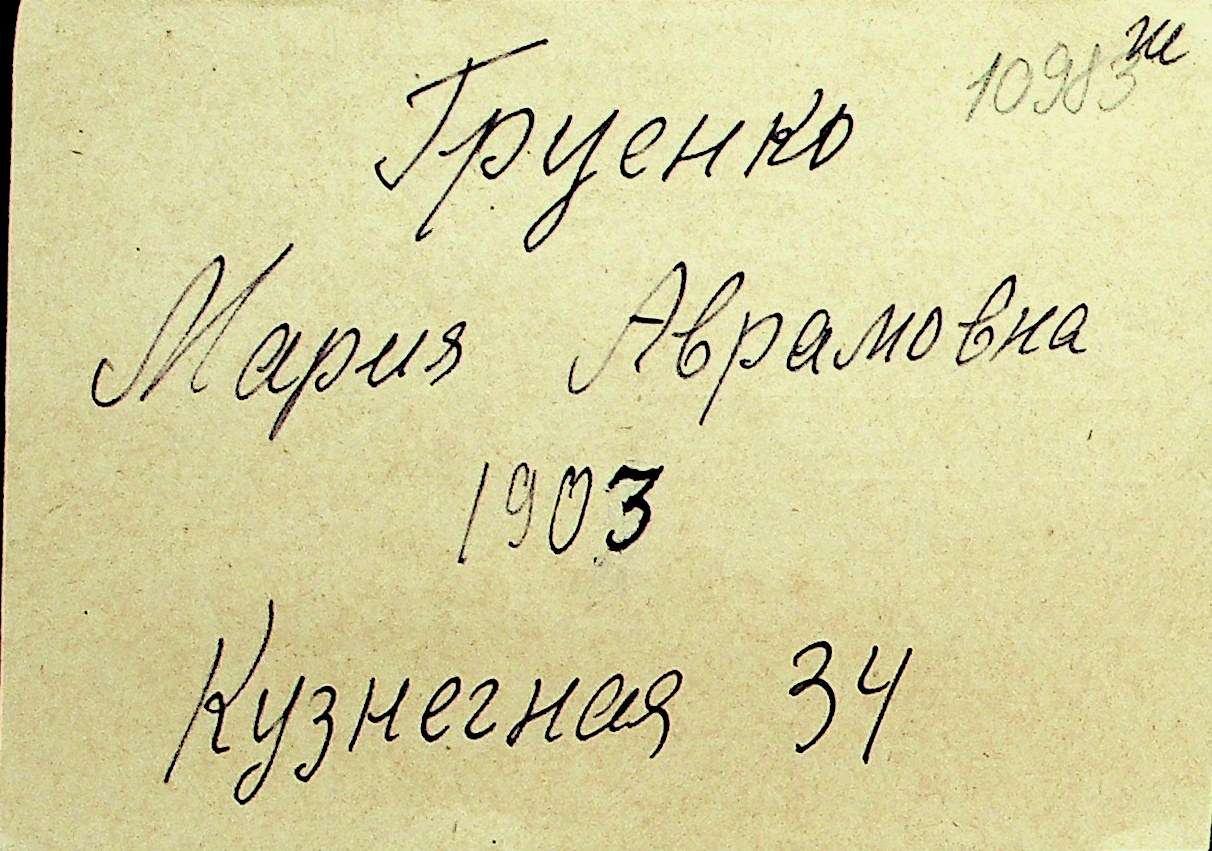 10983 ж
Груенко
Мария Аврамовна
1903
Кузнечная 34